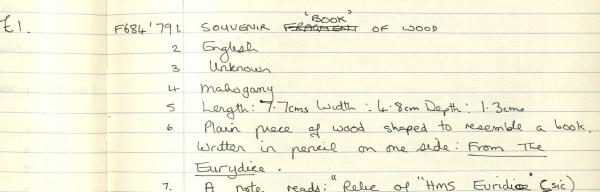 "BOOK"
£1. F684'79 1 SOUVENIR FRAGMENT OF WOOD
2 English
3 Unknown
4 Mahogany
5 Length: 7.7cms Width: 4.8cm Depth: 1.3cms
6 Plain piece of wood shaped to resemble a book.
Written in pencil on one side: From The
Eurydice.
7. A note reads: "Relic of "HMS Euridice (sic)